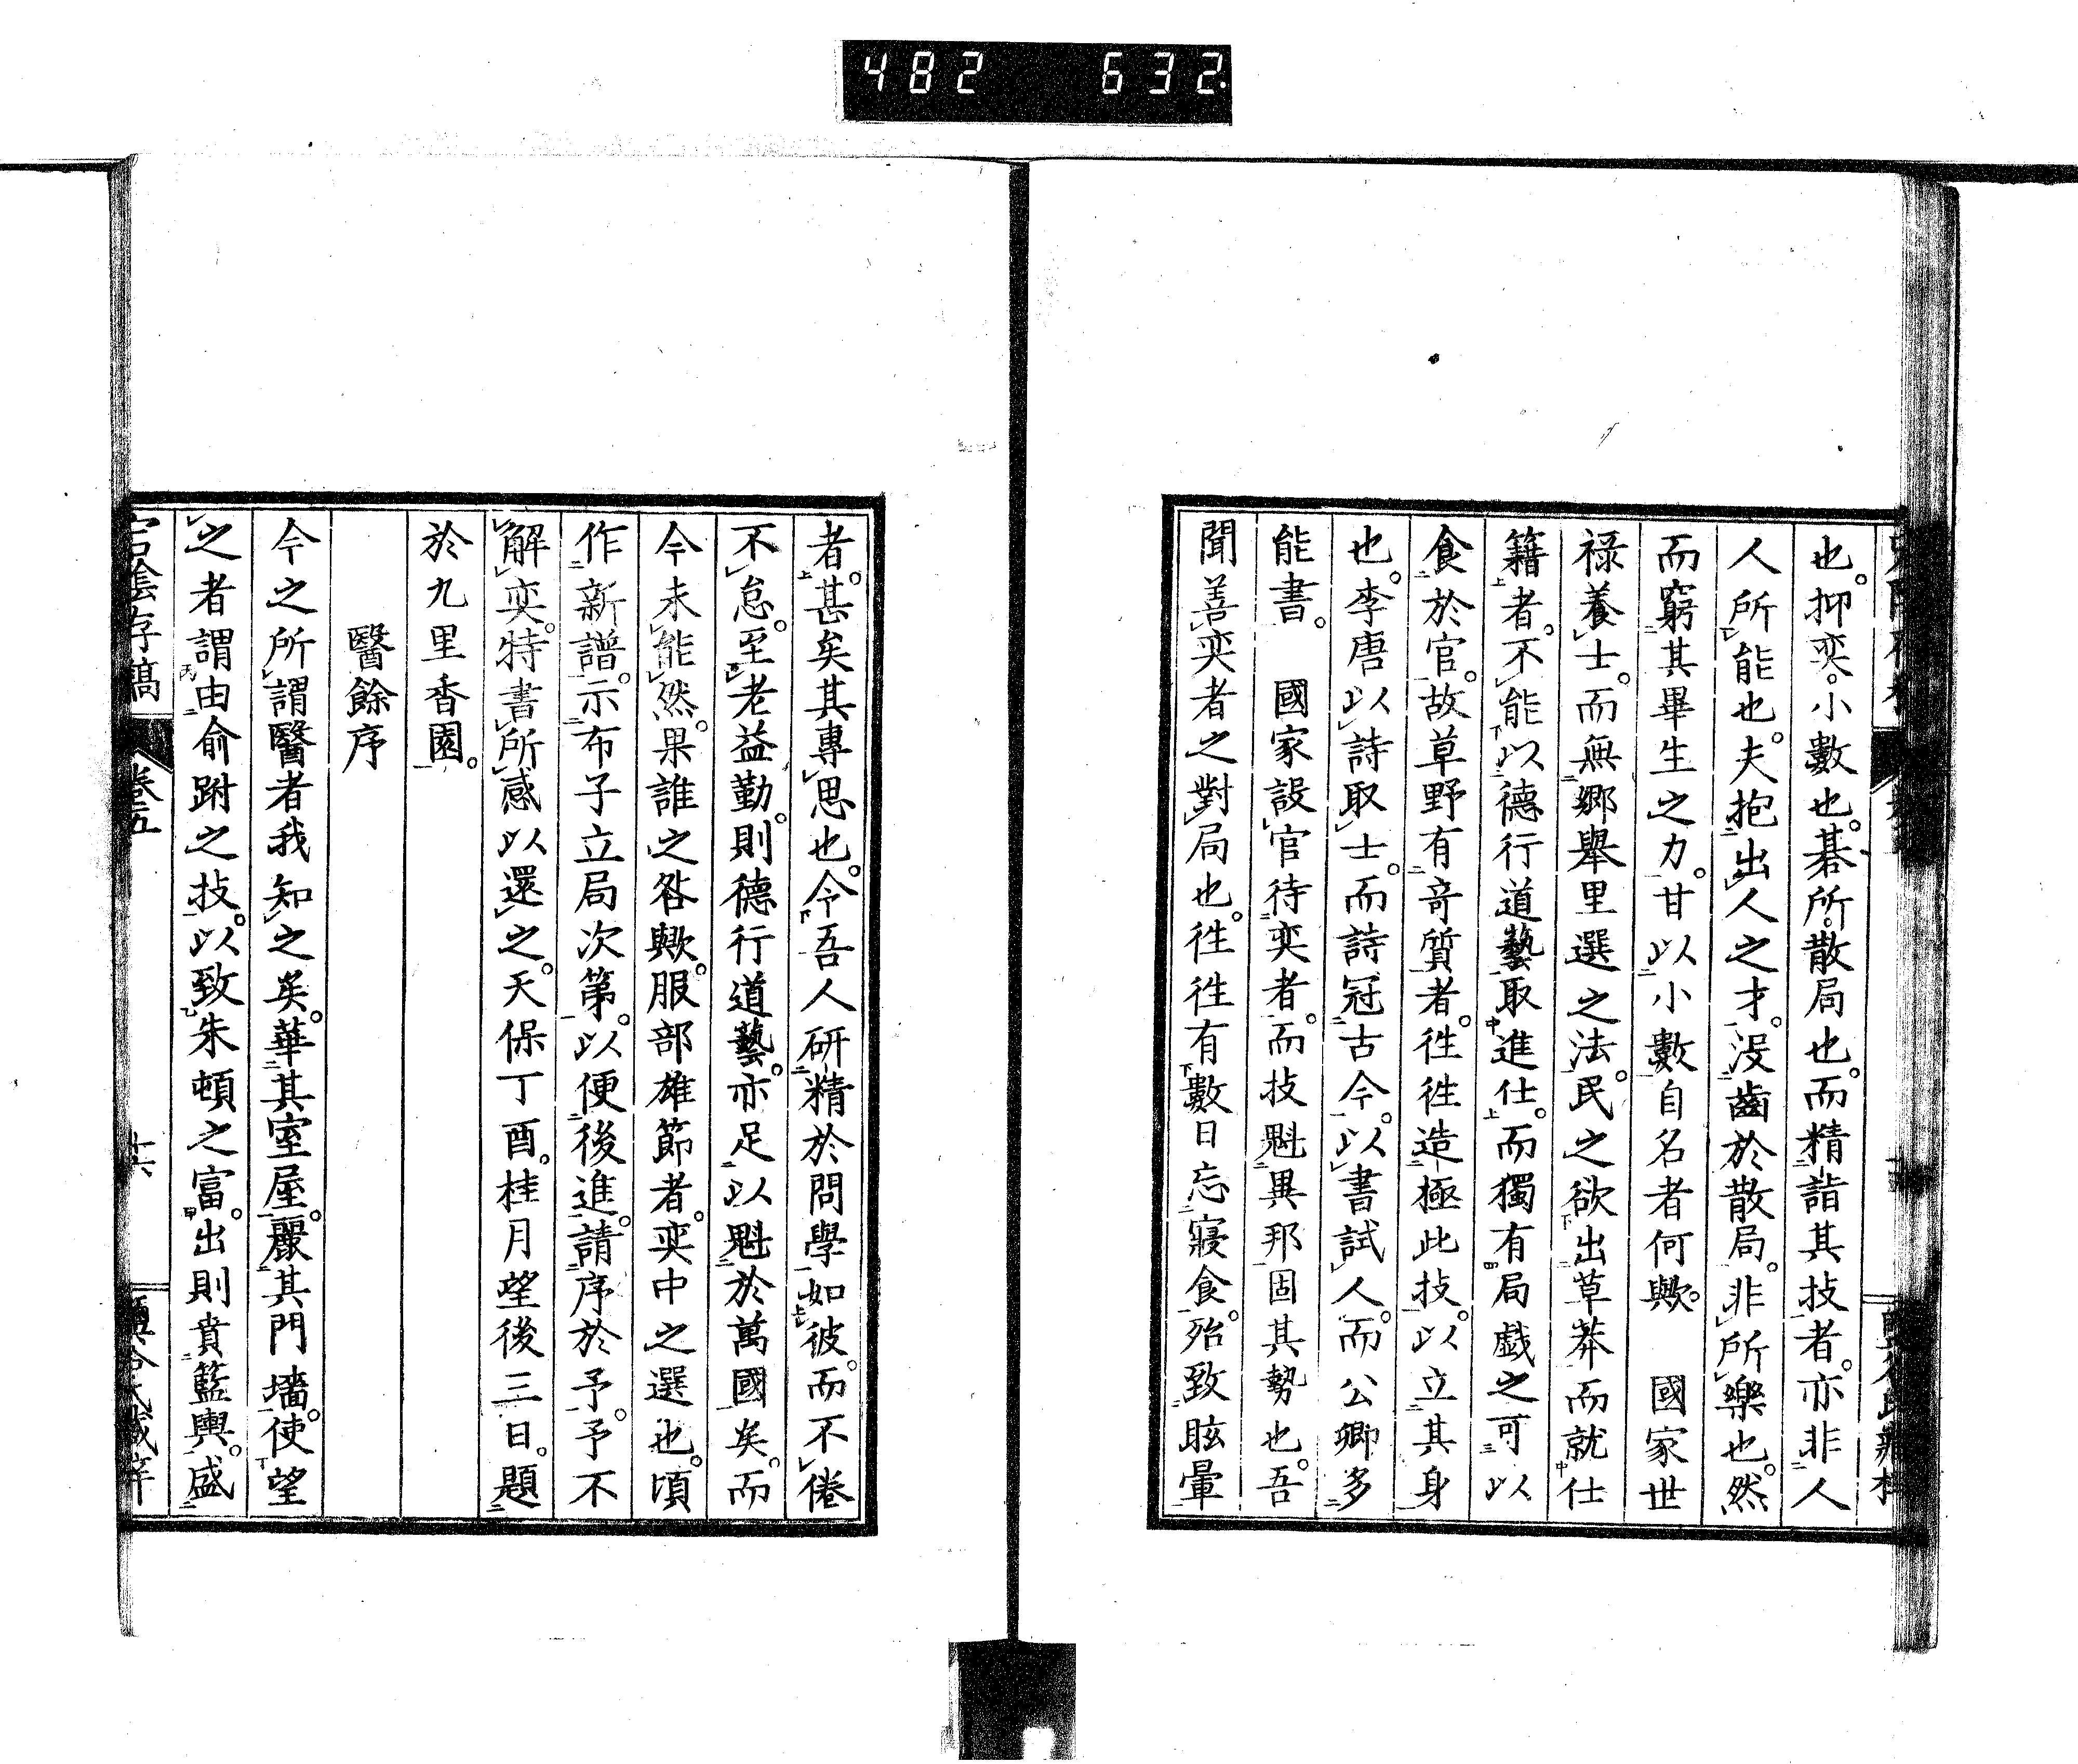 482 632.
也。抑奕。小數也。碁所。散局也。而精詣其技者。亦非人
人所能也。夫抱出人之才。沒齒於散局。非所樂也。然
而窮其畢生之力。甘以小數自名者何歟。 國家世
祿養士。而無鄉舉里選之法。民之欲出草莽而就仕
籍者。不能以德行道藝取進仕。而獨有局戯之可以
食於官。故草野有奇質者。徃徃造極此技。以立其身
也。李唐以詩取士。而詩冠古今。以書試人。而公卿多
能書。 國家設官待奕者。而技魁異邦固其勢也。吾
聞善奕者之對局也。徃徃有數日忘寢食。殆致眩暈
者。甚矣其專思也。今吾人研精於問學如彼。而不倦
不怠。至老益勤。則德行道藝。亦足以魁於萬國矣。而
今未能然。果誰之咎歟。服部雄節者。奕中之選也。頃
作新譜。示布子立局次第。以便後進。請序於予。予不
解奕。特書所感以還之。天保丁酉。桂月望後三日。題
於九里香園。
醫餘序
今之所謂醫者我知之矣。華其室屋。麗其門墻。使望
之者謂由俞跗之技。以致朱頓之富。出則賁籃輿。盛
宕陰存稿 卷五 十六